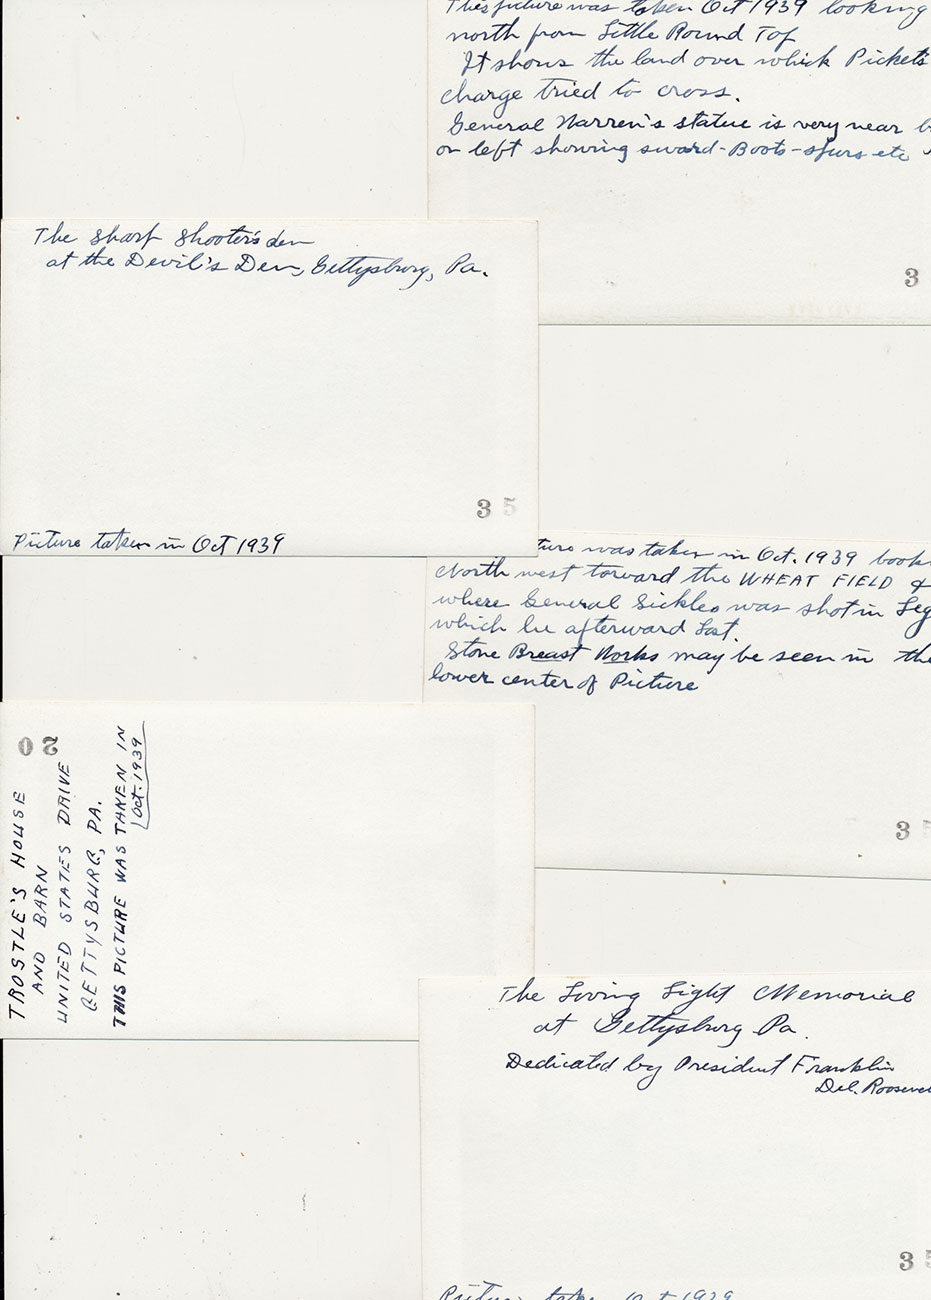 This picture was taken Oct 1939 looking
north from Little Round Top
It shows the land over which Picket's
charge tried to cross.
General Warren's statue is very near
on left showing sword-Boots-spurs etc
3
The sharp shooter's den
at the Devil's Den, Gettysburg, Pa.
35
Picture taken in Oct 1939
was taken in Oct. 1939
North west toward the WHEAT FIELD &
where General Sickles was shot in Leg
which he afterward Lost.
Stone Breast Works may be seen in the
lower center of Picture
3
20
TROSTLE'S HOUSE
AND BARN
UNITED STATES DRIVE
GETTYSBURG, PA.
THIS PICTURE WAS TAKEN IN
Oct. 1939
The Living Light Memorial
at Gettysburg Pa.
Dedicated by President Franklin
Del.
35
Picture taken Oct 1939